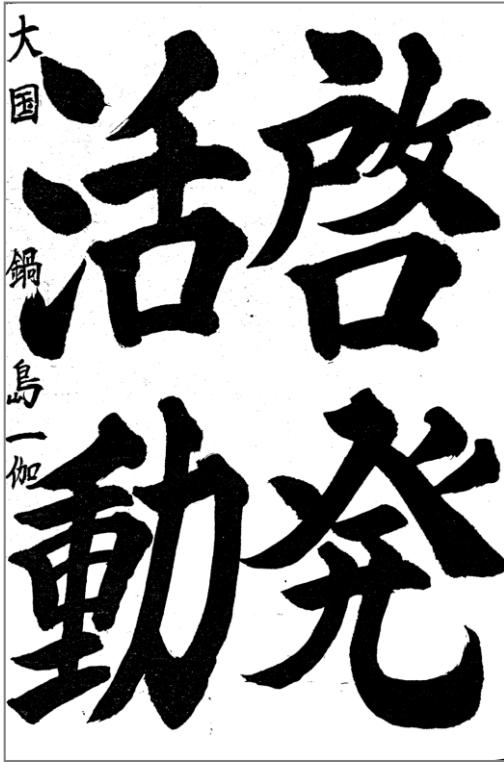 啓発
活動
大国 鍋島一伽